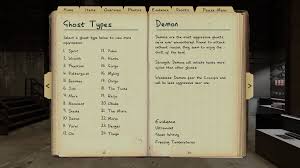 Home Items Overview Photos Evidence Bonds Maps
Ghost Types
Select a ghost type below to see more
information.
1. Spirit
2. Wraith
3. Phantom
4. Poltergeist
5. Banshee
6. Jinn
7. Mare
8. Revenant
9. Shade
10. Demon
11. Yurei
12. Oni
13. Yokai
14. Hantu
15. Goryo
16. Myling
17. Onryo
18. The Twins
19. Raiju
20. Obake
21. The Mimic
22. Moroi
23. Deogen
24. Thaye
Demon
Demons are the most aggressive ghosts
we've ever encountered. Known to attack
without reason, they seem to enjoy the
thrill of the hunt.
Strength: Demons will initiate hunts more
often than other ghosts.
Weakness: Demons fear the Crucifix and
will be less aggressive near one.
Evidence
Ultraviolet
Ghost Writing
Freezing Temperatures